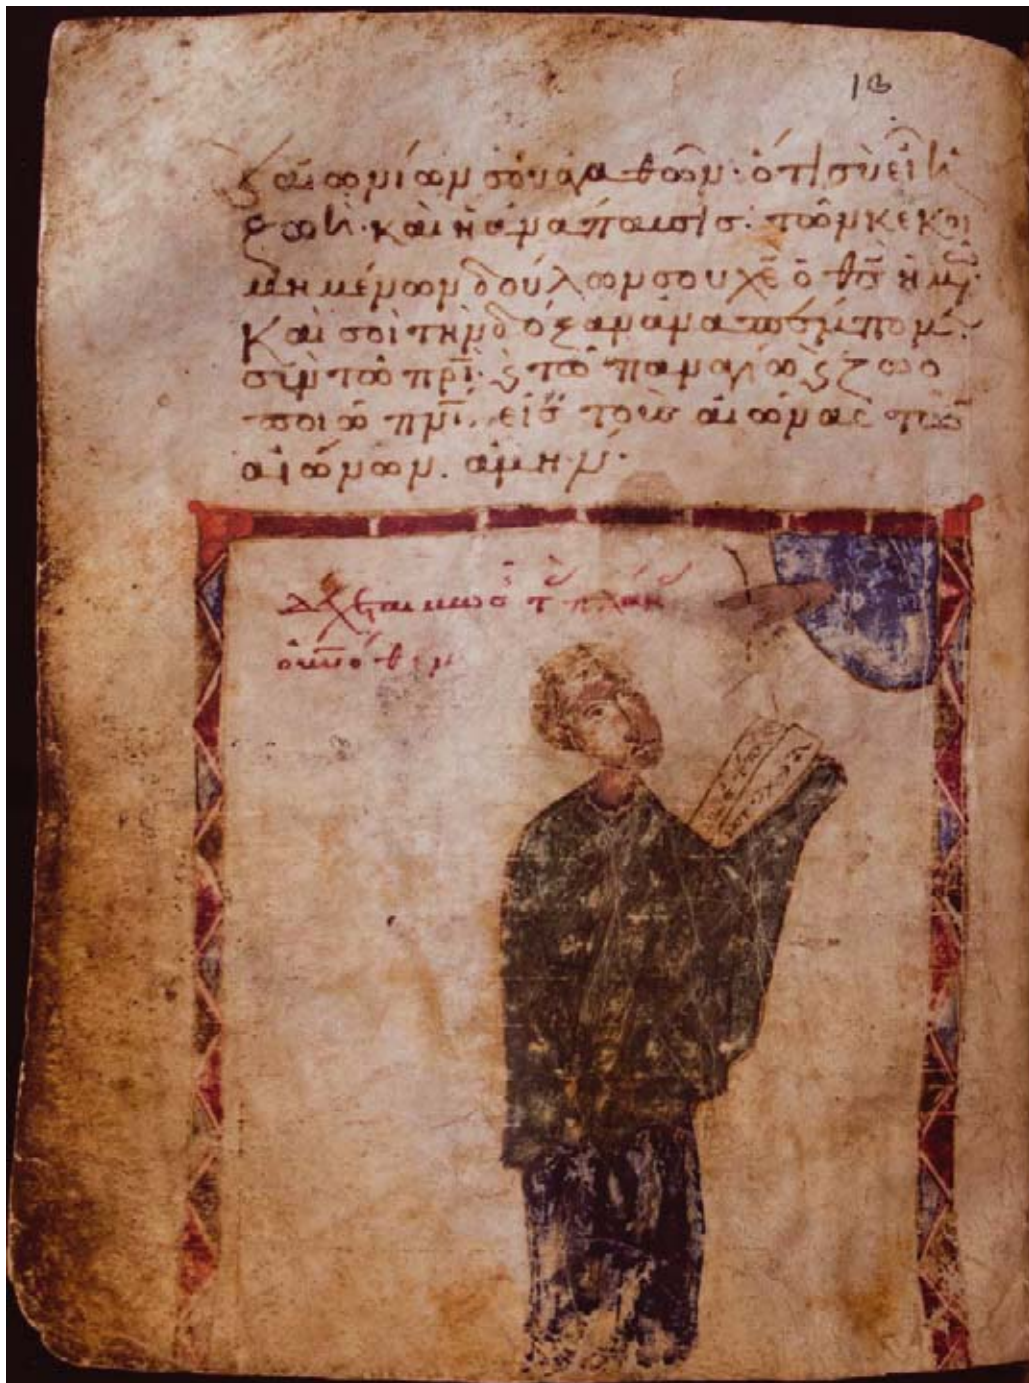 ϗ αἰωνίων σου ἀγαθῶν· ὅτι σὺ εἶ ἡ
ζωὴ· καὶ ἡ ἀνάπαυσις· τῶν κεκοι
μημένων δούλων σου χε̅ ὁ θς̅ ἡμ·
Καὶ σοὶ τὴν δόξαν ἀναπέμπομεν
σὺν τῶ πρι̅· ϗ τῶ παναγίω ϗ ζωο
ποιῶ πνι̅· εἰς τοὺς αἰῶνας τῶν
αἰώνων. ἀμήν·